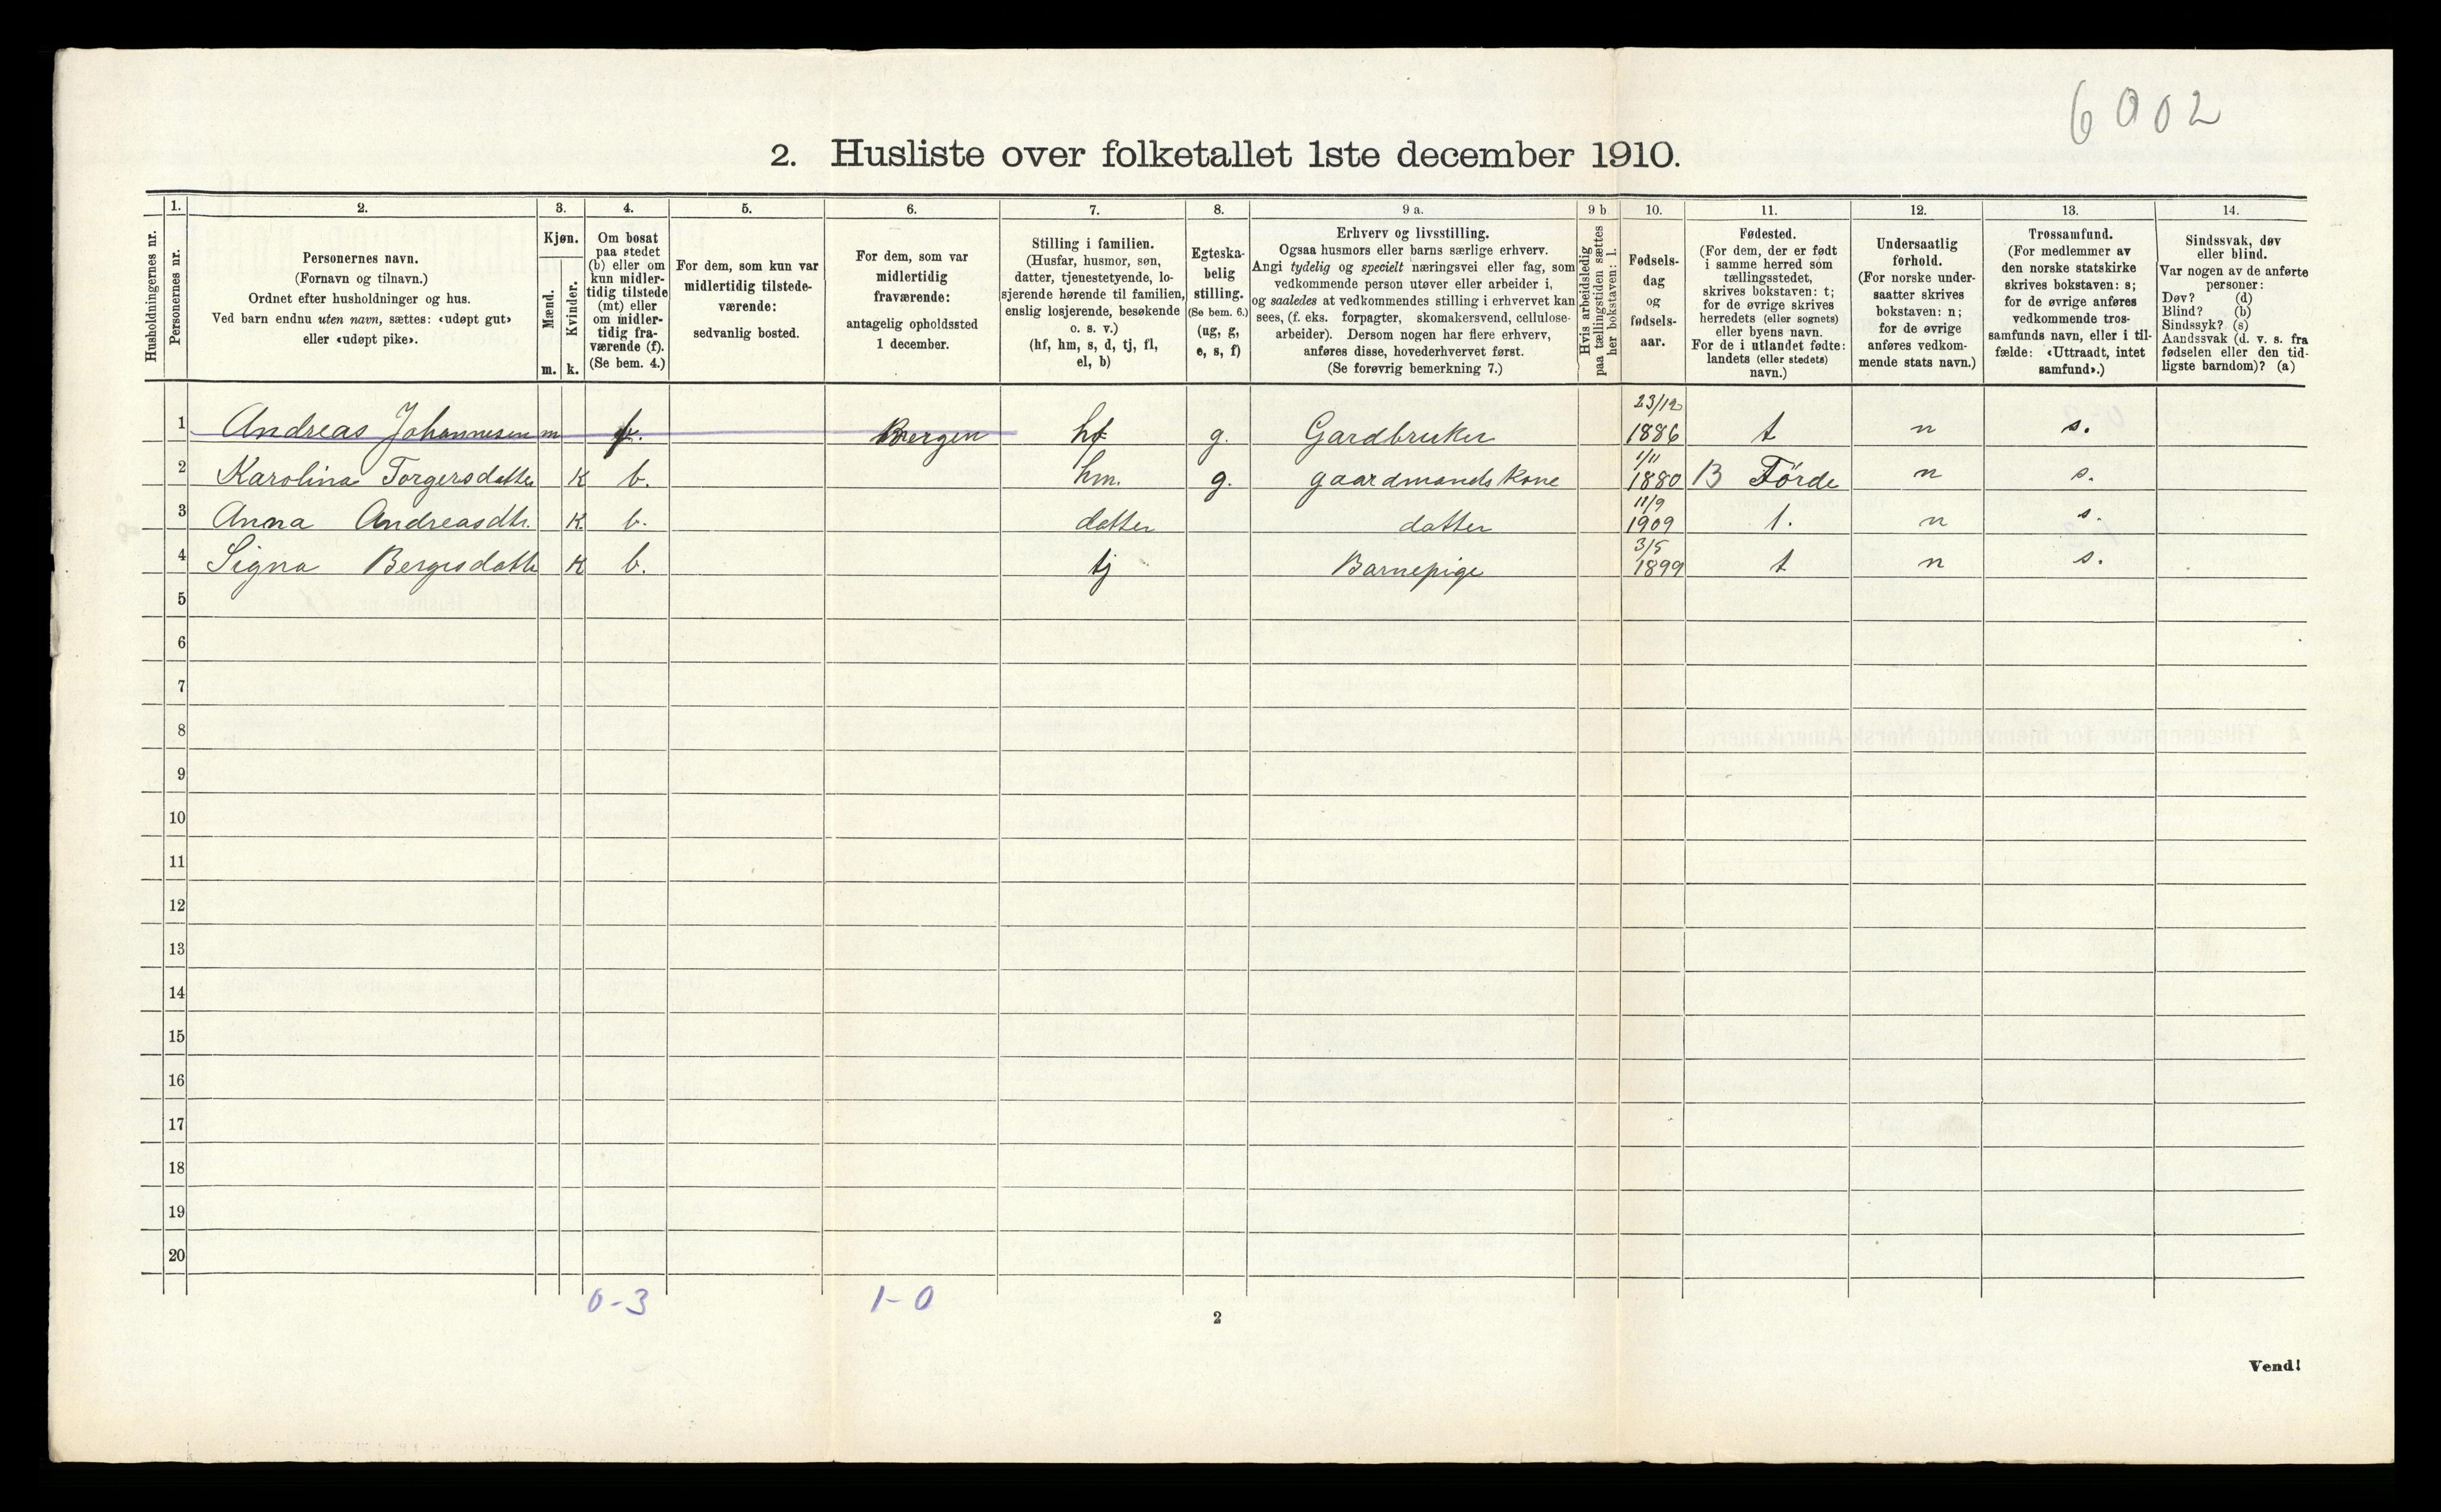 6002
2. Husliste over folketallet 1ste december 1910.
1. 2. 3. 4. 5. 6. 7. 8. 9 a. 9 b 10. 11. 12. 13. 14.
Husholdningernes nr.
Personernes nr.
Personernes navn.
(Fornavn og tilnavn.)
Ordnet efter husholdninger og hus.
Ved barn endnu uten navn, sættes: «udøpt gut»
eller «udøpt pike».
Kjøn.
Mænd.
Kvinder.
m. k.
Om bosat
paa stedet
(b) eller om
kun midler-
tidig tilstede
(mt) eller
om midler-
tidig fra-
værende (f).
(Se bem. 4.)
For dem, som kun var
midlertidig tilstede-
værende:
sedvanlig bosted.
For dem, som var
midlertidig
fraværende:
antagelig opholdssted
1 december.
Stilling i familien.
(Husfar, husmor, søn,
datter, tjenestetyende, lo-
sjerende hørende til familien,
enslig losjerende, besøkende
o. s. v.)
(hf, hm, s, d, tj, fl,
el, b)
Egteska-
belig
stilling.
(Se bem. 6.)
(ug, g,
e, s, f)
Erhverv og livsstilling.
Ogsaa husmors eller barns særlige erhverv.
Angi tydelig og specielt næringsvei eller fag, som
vedkommende person utøver eller arbeider i,
og saaledes at vedkommendes stilling i erhvervet kan
sees, (f. eks. forpagter, skomakersvend, cellulose-
arbeider). Dersom nogen har flere erhverv,
anføres disse, hovederhvervet først.
(Se forøvrig bemerkning 7.)
Hvis arbeidsledig
paa tællingstiden sættes
her bokstaven: l.
Fødsels-
dag
og
fødsels-
aar.
Fødested.
(For dem, der er født
i samme herred som
tællingsstedet,
skrives bokstaven: t;
for de øvrige skrives
herredets (eller sognets)
eller byens navn.
For de i utlandet fødte:
landets (eller stedets)
navn.)
Undersaatlig
forhold.
(For norske under-
saatter skrives
bokstaven: n;
for de øvrige
anføres vedkom-
mende stats navn.)
Trossamfund.
(For medlemmer av
den norske statskirke
skrives bokstaven: s;
for de øvrige anføres
vedkommende tros-
samfunds navn, eller i til-
fælde: «Uttraadt, intet
samfund».)
Sindssvak, døv
eller blind.
Var nogen av de anførte
personer:
Døv? (d)
Blind? (b)
Sindssyk? (s)
Aandssvak (d. v. s. fra
fødselen eller den tid-
ligste barndom)? (a)
1 Andreas Johannesen m f. Bergen hf g. Gardbruker 23/12 1886 t n s.
2 Karolina Torgersdatter K b. hm. g. gaardmands kone 1/11 1880 B Förde n s.
3 Anna Andreasdtr. K. b. datter datter 11/9 1909 t. n s.
4 Signa Bergesdatte K b. tj Barnepige 3/5 1899 t n s.
5
6
7
8
9
10
11
12
13
14
15
16
17
18
19
20
0-3 1-0
2
Vend!